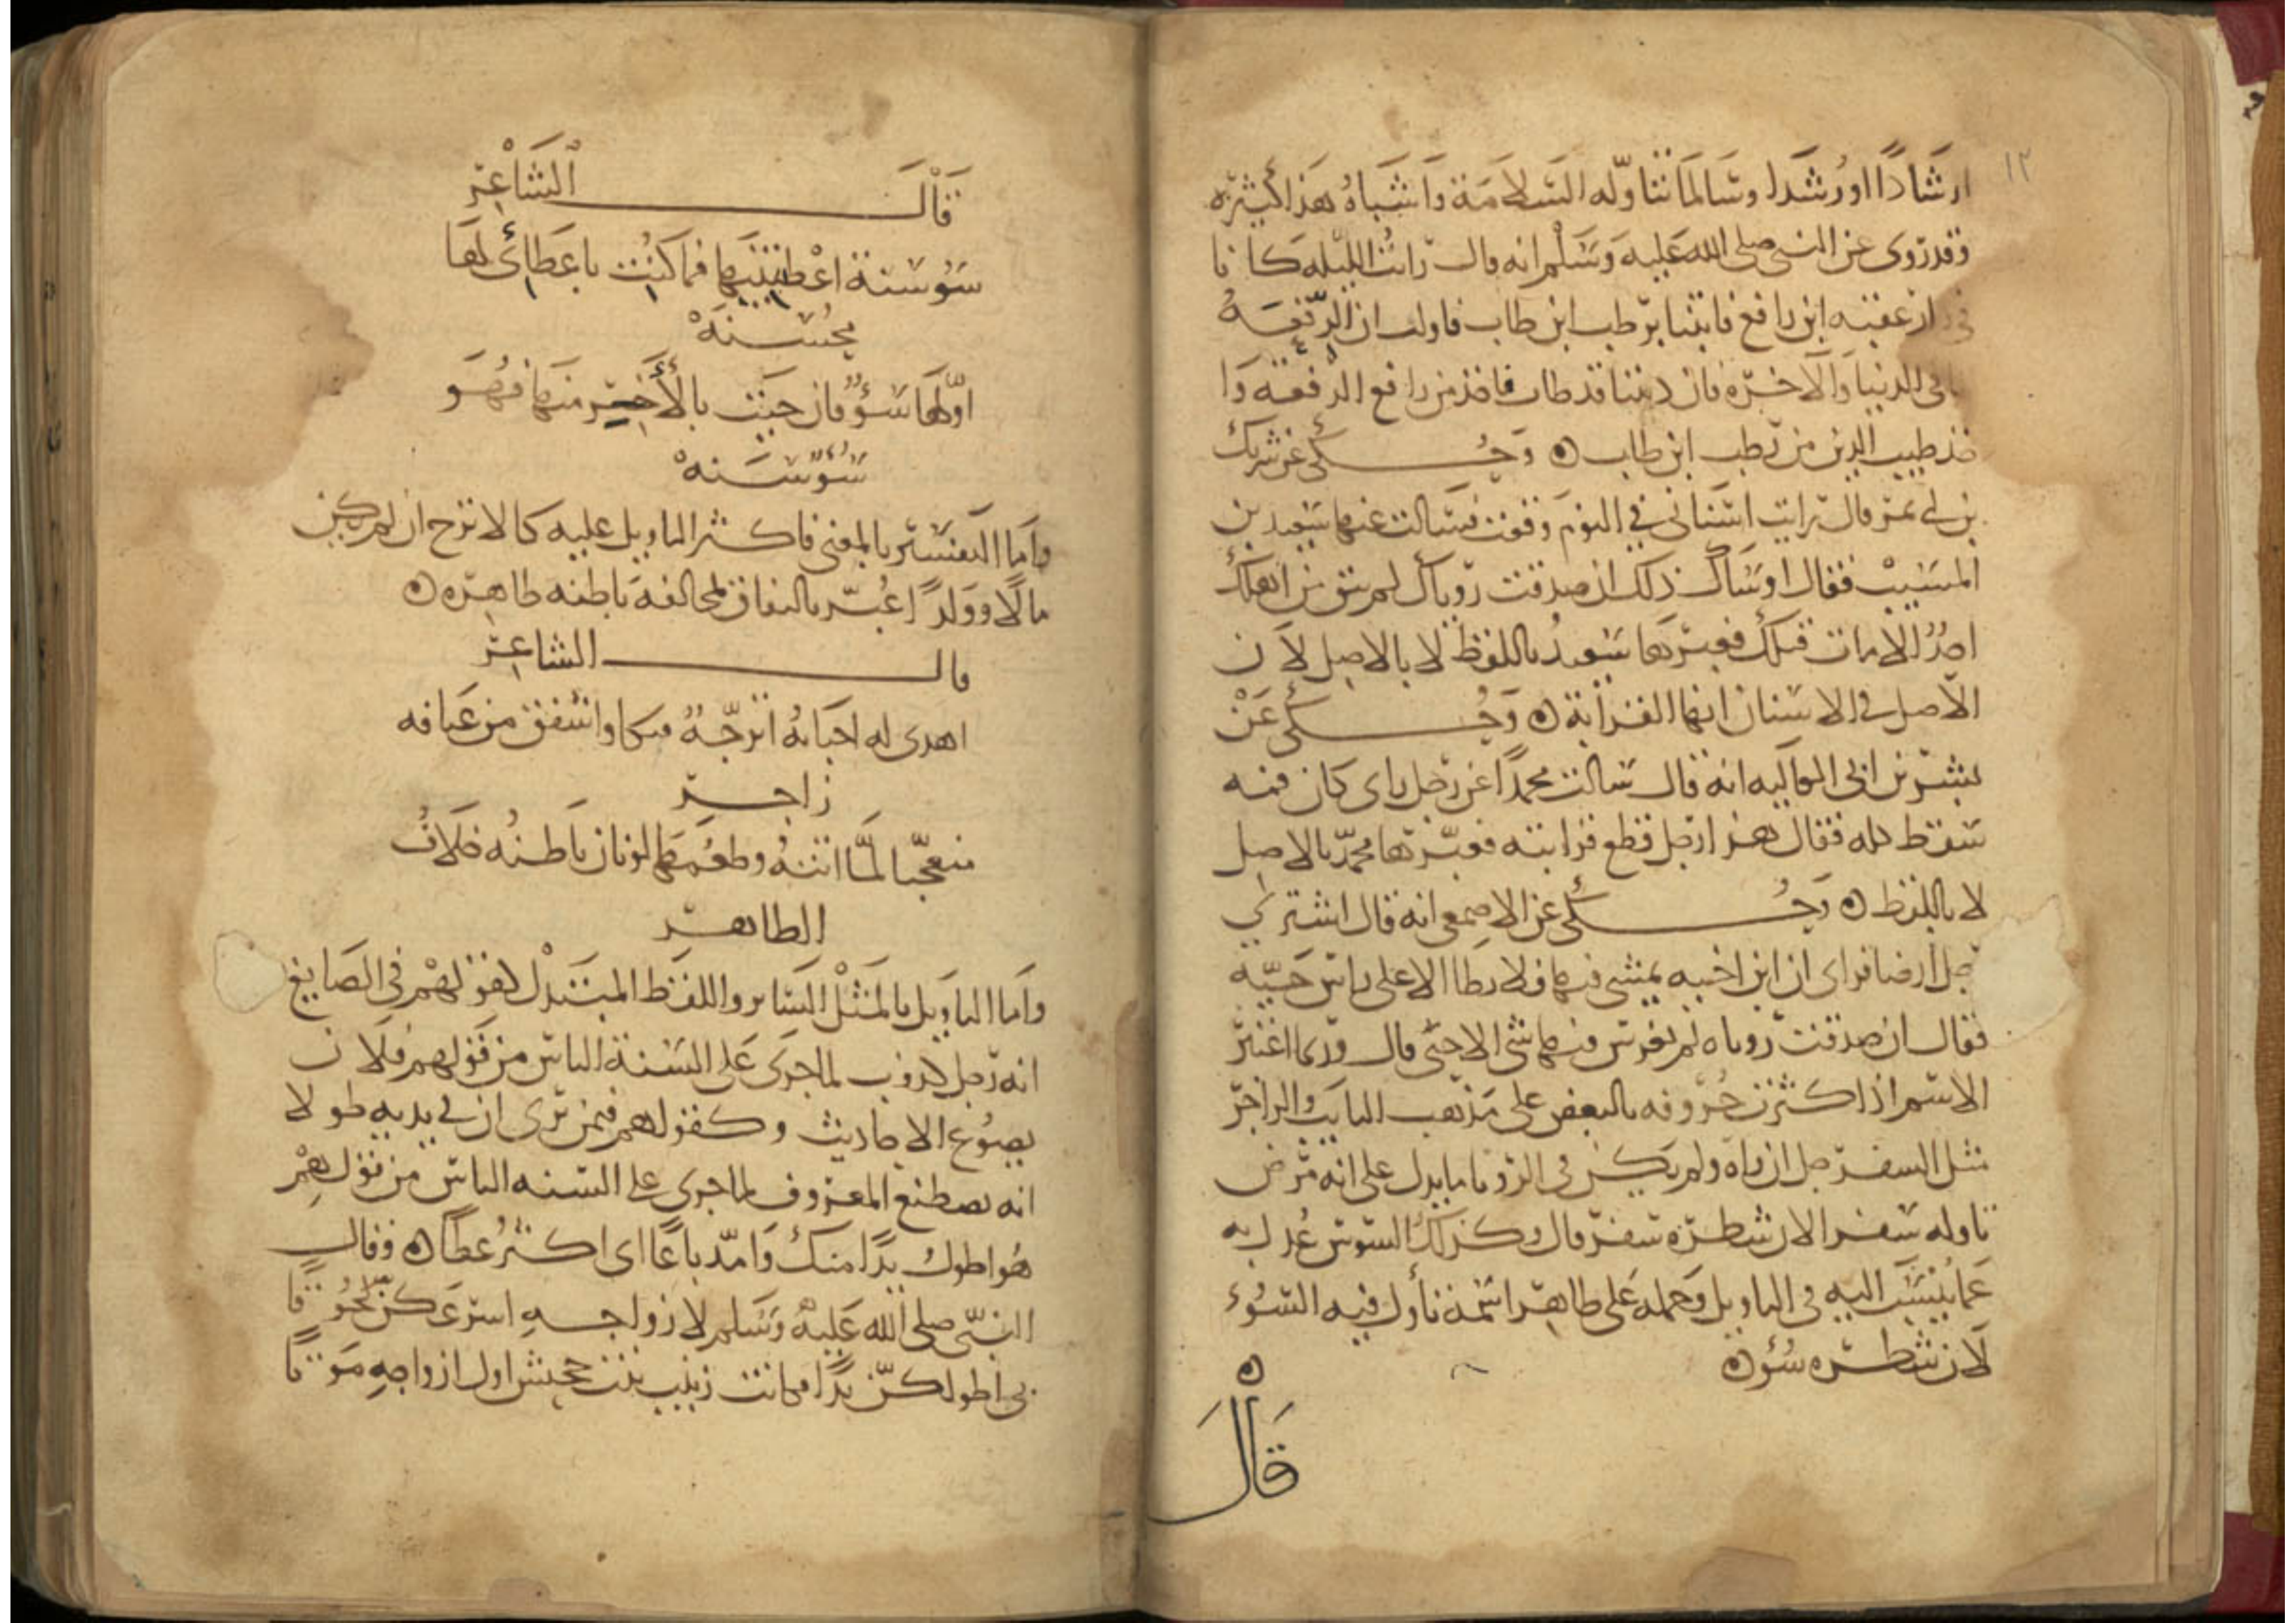 ١٢
ارشادًا اورُشدا وسَالمَا نتاوله السَلامَة وَاشبَاهُ هَذا كثيرَه
وقد روى عن النبي صلى الله عليه وسَلم انه قال رايتُ الليله كانا
في دار عقبه ابن رافع فاتينا برطب ابن طاب فاولت ان الرفعَهُ
لنا في الدنيا وَالاخرة وان ديننا قد طاب فاخذ من رافع الرفعه وَا
خذ طيب الدين من رطب ابن طاب ه وَحُكى عن شريك
بن ابي نمر قال رايت اسنَاني في النومَ وقعت فسَالت عنها سَعيد بن
المسَيبْ فقال اوسَاك ذلك ان صدقت روياك لم يبق من اهلك
احدُ الا مات قبلك فعبرهَا سَعيدُ باللفظ لا بالاصل لاَن
الاصل في الاسنان انها القرابة ه وَحُكى عَنْ
بشر بن ابي العاليه انه قال سَالت محمدًا عن رجل راى كان فيه
سَقط كله فقال هذا رجل قطع قرابته فعبّرها محمدٌ بالاصل
لا باللفظ ه وَحُكى عن الاصمعي انه قال اشترى
رجل ارضا فراى ان ابن اخيه يمشي فيها فلا يطا الا على راس حَيّه
فقال ان صدقت روياه لم يغرس فيها شي الا حيّى قال وربما اعتبر
الاسَم اذا كثرت حُروفه بالبعض على مَذهب القايف والزاجر
مثل السفرجل ان راه ولم يكن في الرويا ما يدل على انه مَرض
تاوله سَفرا لان شطره سَفر قال وكذلك السوسن عُدل به
عَما يُنسَب اليه في التاويل وَحمله عَلى ظاهر اسَمه تأول فيه السُوء
لاَن شطره سُؤ ه
ه
قَالَ
قَالَ الشَاعِر
سَوُسَنة اعْطيتنيها فما كنُت باعَطائى لهَا
محُسَنهْ
اوّلهَا سَؤٌ فان جيَت بالأخِيَر منهَا فهُوَ
سُوُسَنهْ
وَامَا التفسَير بالمعنى فاكثر التاويل عليه كالاترج ان لم يكن
مالًا وَوَلدًا عُبّر بالنفاق لمخالفة بَاطنه ظاهِره ه
قال الشاعِر
اهدى له احبَابهُ اترجّةً فبكا واشفق من عيَافه
زاجِر
متعجّبا لمَّا اتتهُ وطعُمهَا لونان بَاطنُه خلاَفُ
الظاهر
وَامَا التاويل بالمَثلْ السَاير واللفظ المبتذلْ كقولهمْ في الصَايغ
انه رَجل كذوب لما جرَى عَلى السَنة الناس من قولهم فلَان
يصُوُغ الاحاديث وكقولهم فيمن يَرى ان في يديه طولا
انه يصطنع المعروف لما جرى على السَنه الناس من قولهِمْ
هُو اطول يدًا منك وَامدّ باعًا اى اكثرُ عطًا ه وقال
النبّى صلى الله عَليهُ وَسَلم لازواجهِ اسرَعَكن لحُوقًا
بى اطولكنّ يدًا فكانت زينب بنت جحش اول ازواجهِ مَوتًا